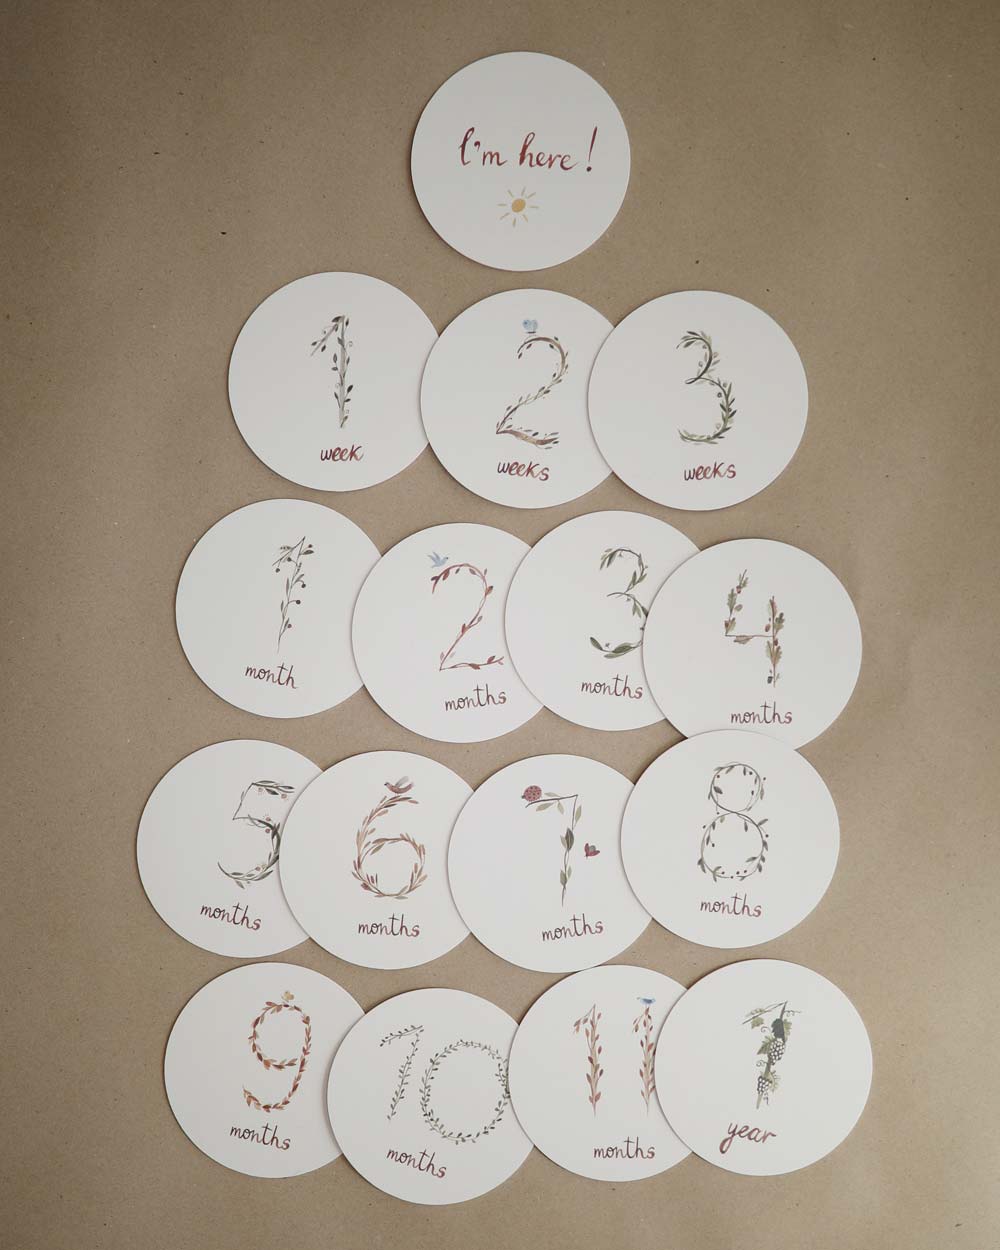 I'm here!
1
week
2
weeks
3
weeks
1
month
2
months
3
months
4
months
5
months
6
months
7
months
8
months
9
months
10
months
11
months
1
year